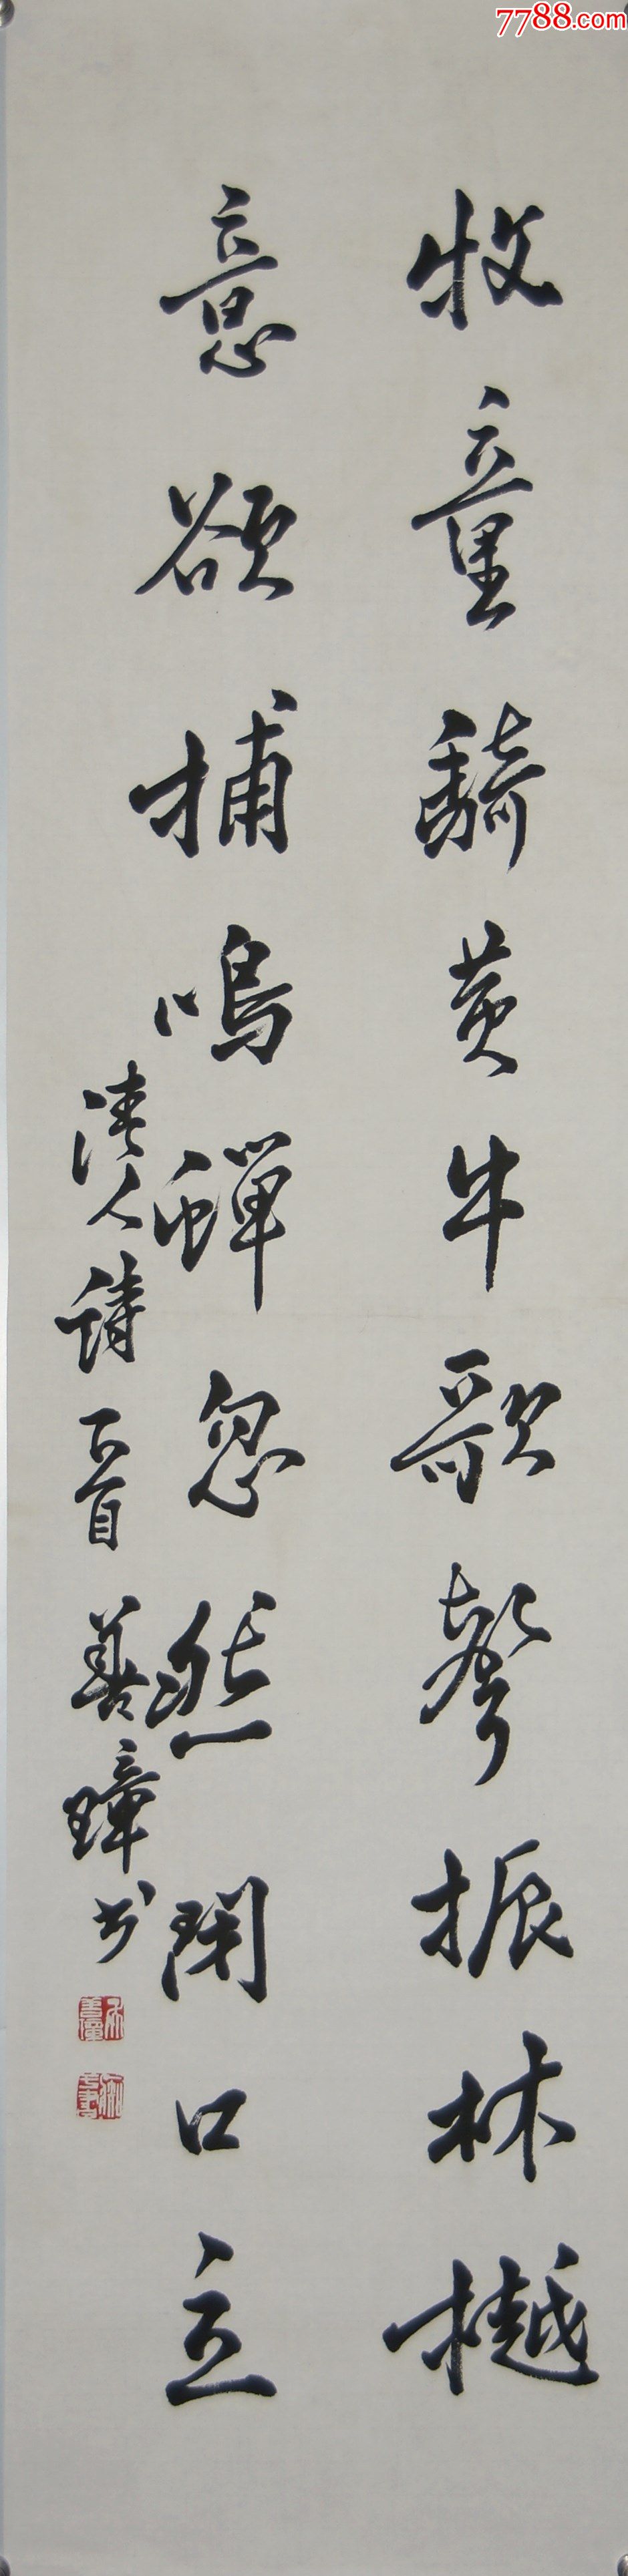 7788.com
牧童騎黄牛歌聲振林樾
意欲捕鳴蟬忽然閉口立
清人詩一首善璋书